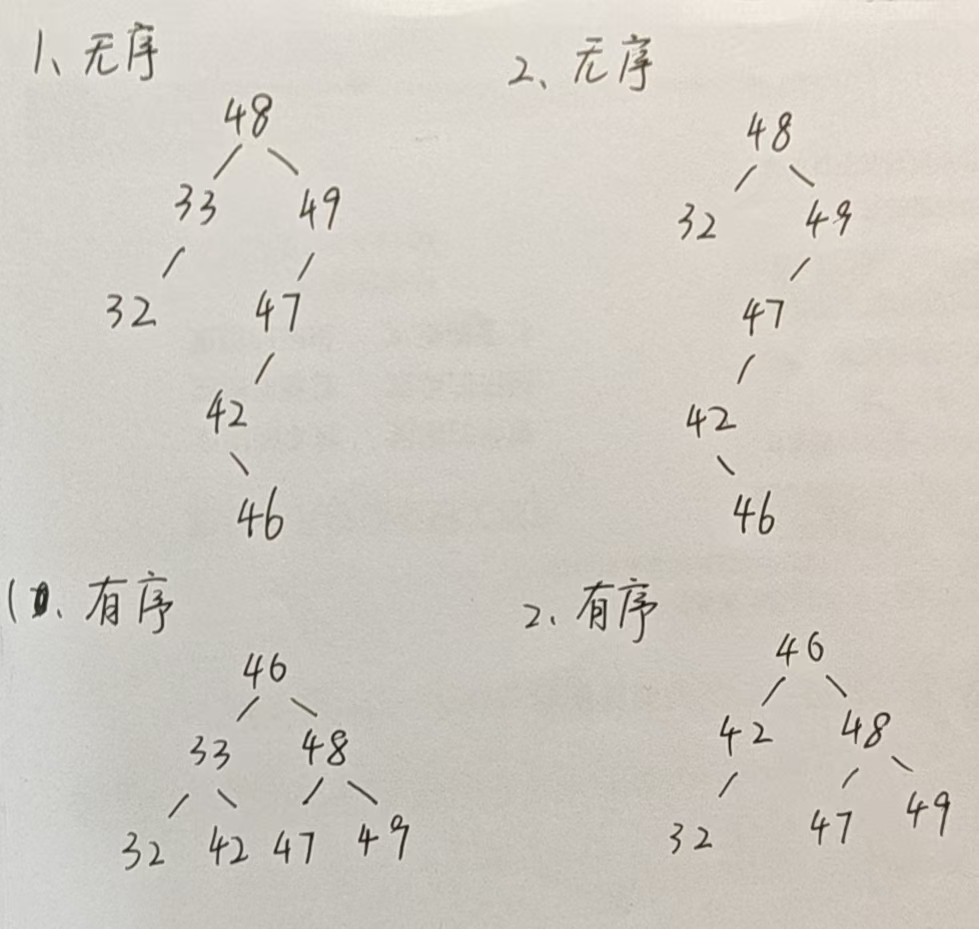 1、无序
48
33 49
32 47
42
46
2、无序
48
32 49
47
42
46
1、有序
46
33 48
32 42 47 49
2、有序
46
42 48
32 47 49